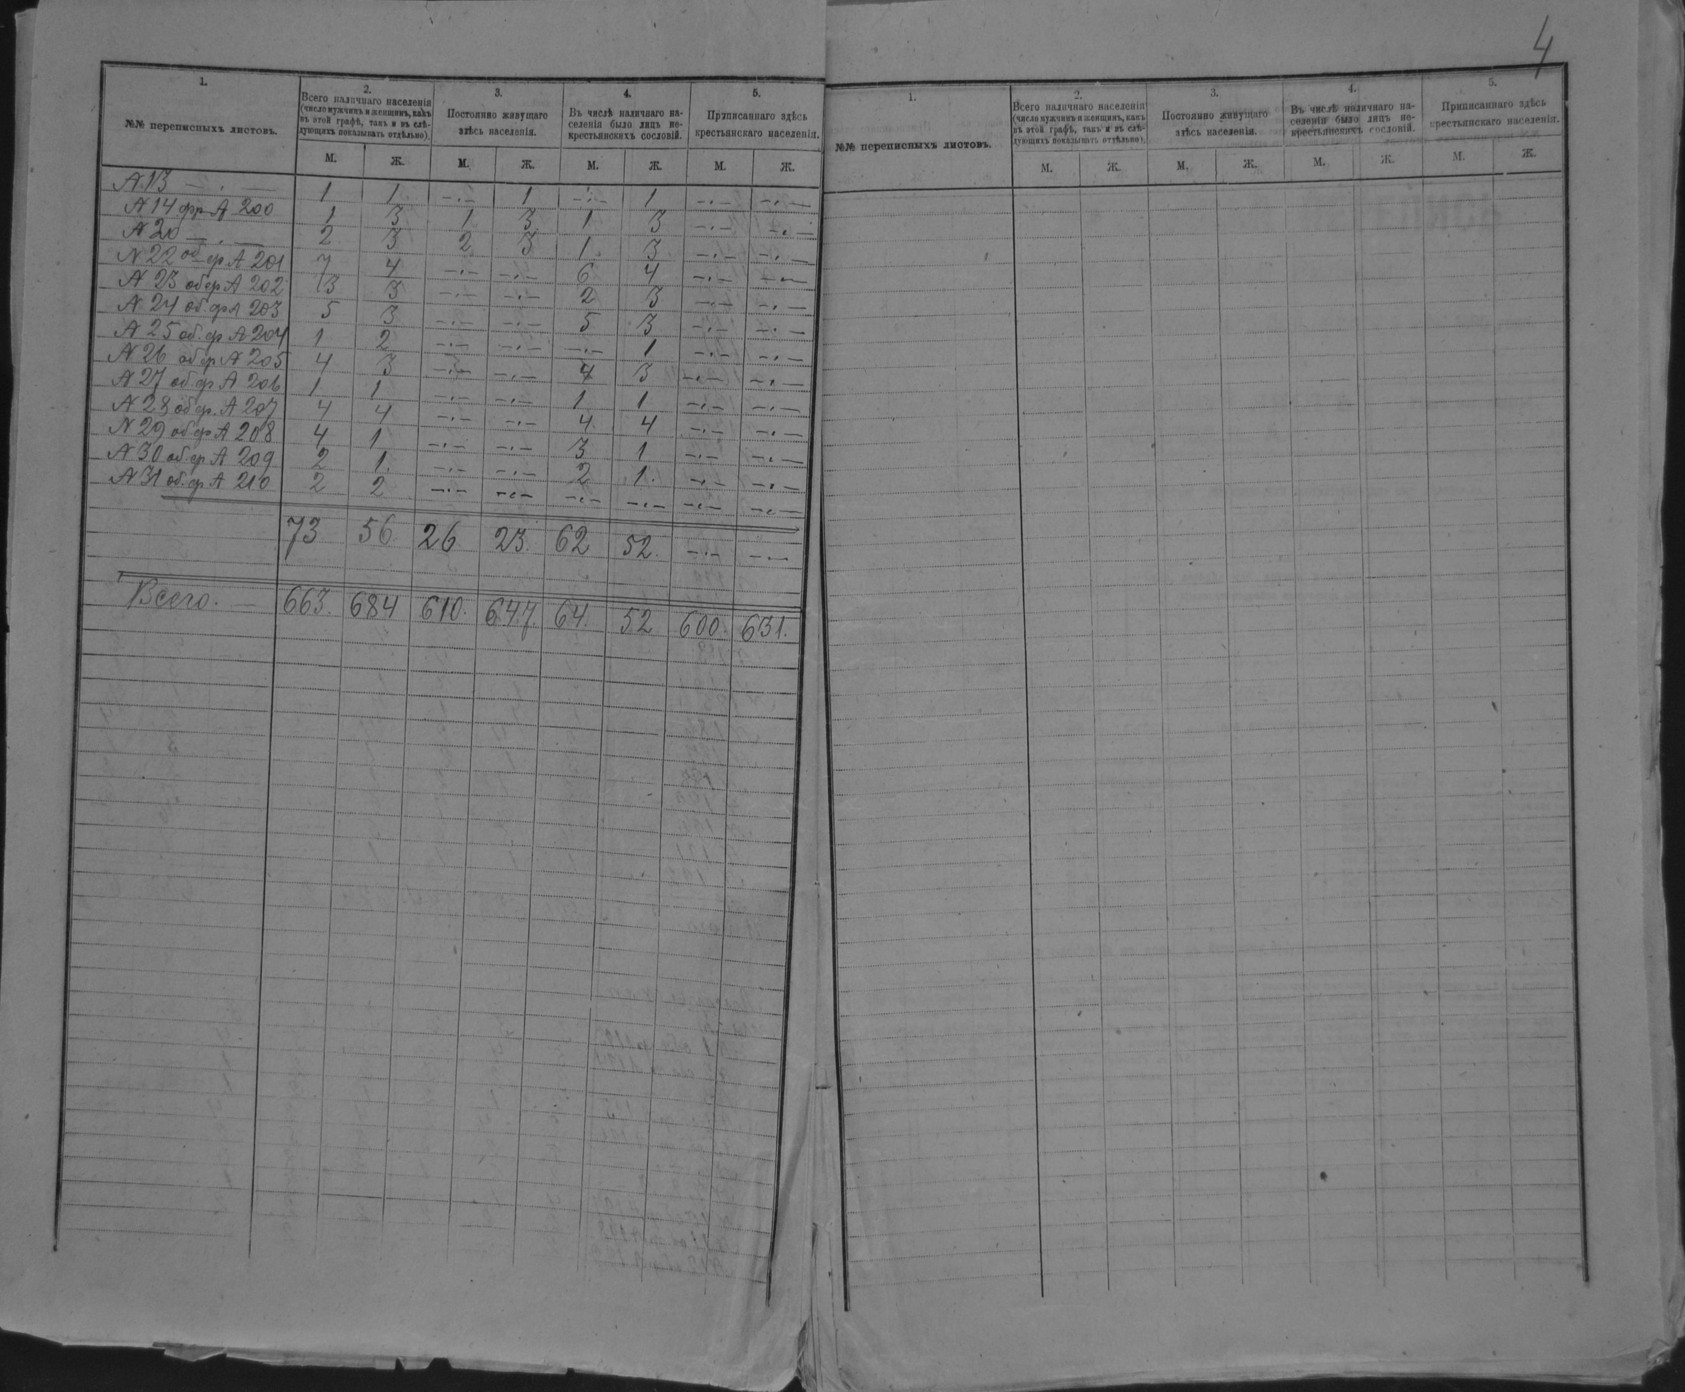 4
1. 2. 3. 4. 5.
№№ переписныхъ листовъ. Всего наличнаго населенія (число мужчинъ и женщинъ, какъ въ этой графѣ, такъ и въ слѣдующихъ показывать отдѣльно). Постоянно живущаго здѣсь населенія. Въ числѣ наличнаго населенія было лицъ некрестьянскихъ сословій. Приписаннаго здѣсь крестьянскаго населенія.
М. Ж. М. Ж. М. Ж. М. Ж.
№ 13 — . — 1 1. —.— 1 —.— 1 —.— —.—
№ 14 фр № 200 1 3 1 3 1 3 —.— —.—
№ 20 — . — 2 3 2 3 1. 3 —.— —.—
№ 22 об ф № 201 7 4 —.— —.— 6 4 —.— —.—
№ 23 об ф № 202 3 3 —.— —.— 2 3 —.— —.—
№ 24 об. ф № 203 5 3 —.— —.— 5 3 —.— —.—
№ 25 об. ф № 204 1 2 —.— —.— —.— 1 —.— —.—
№ 26 об ф № 205 4 3 —.— —.— 4 3 —.— —.—
№ 27 об. ф № 206 1 1 —.— —.— 1 1 —.— —.—
№ 28 об ф. № 207 4 4 —.— —.— 4 4 —.— —.—
№ 29 об ф № 208 4 1 —.— —.— 3 1 —.— —.—
№ 30 об. ф № 209 2 1. —.— —.— 2 1. —.— —.—
№ 31 об. ф № 210 2 2 —.— —.— —.— —.— —.— —.—
73 56. 26 23. 62 52. —.— —.—
Всего. — 663. 684 610. 647. 64. 52 600. 631.
1. 2. 3. 4. 5.
№№ переписныхъ листовъ. Всего наличнаго населенія (число мужчинъ и женщинъ, какъ въ этой графѣ, такъ и въ слѣдующихъ показывать отдѣльно). Постоянно живущаго здѣсь населенія. Въ числѣ наличнаго населенія было лицъ некрестьянскихъ сословій. Приписаннаго здѣсь крестьянскаго населенія.
М. Ж. М. Ж. М. Ж. М. Ж.